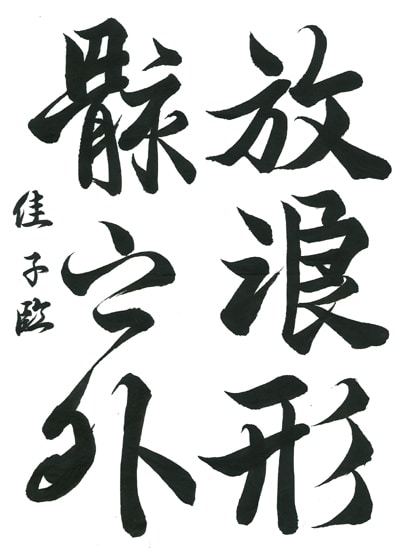 放浪形
骸之外
佳子臨